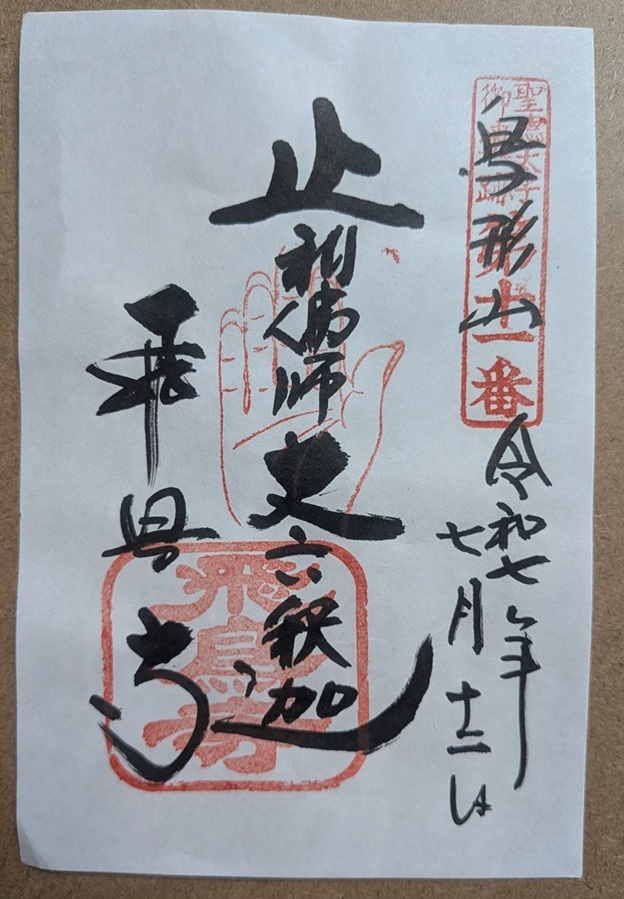 聖徳太子
御遺跡第十一番
鳥形山
令和七年
七月十二日
止利佛師丈六釈迦
飛鳥寺
飛鳥寺